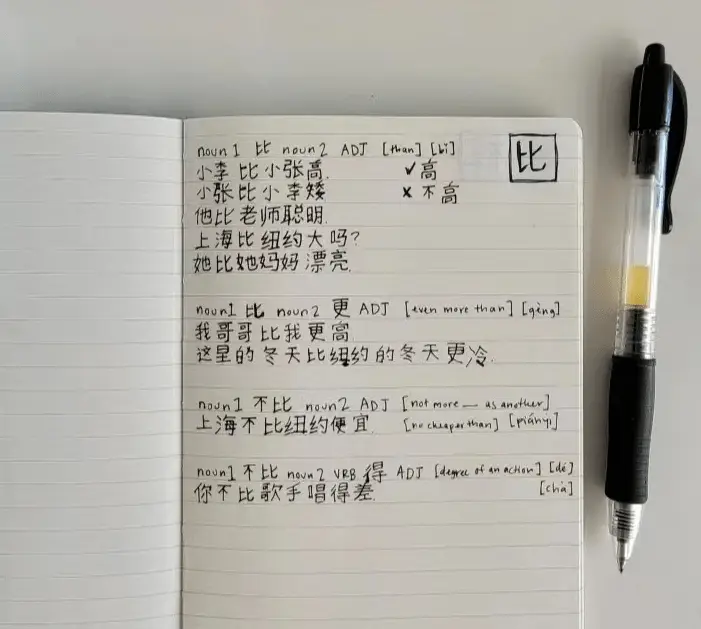 比
noun 1 比 noun 2 ADJ [than] [bǐ]
小李比小张高. ✓高
小张比小李矮 ✗不高
他比老师聪明.
上海比纽约大吗?
她比她妈妈漂亮.
noun1 比 noun 2 更 ADJ [even more than] [gèng]
我哥哥比我更高
这里的冬天比纽约的冬天更冷.
noun1 不比 noun 2 ADJ [not more — as another]
上海不比纽约便宜 [no cheaper than] [piányi]
noun1 不比 noun 2 VRB 得 ADJ [degree of an action] [dé]
你不比歌手唱得差. [chà]